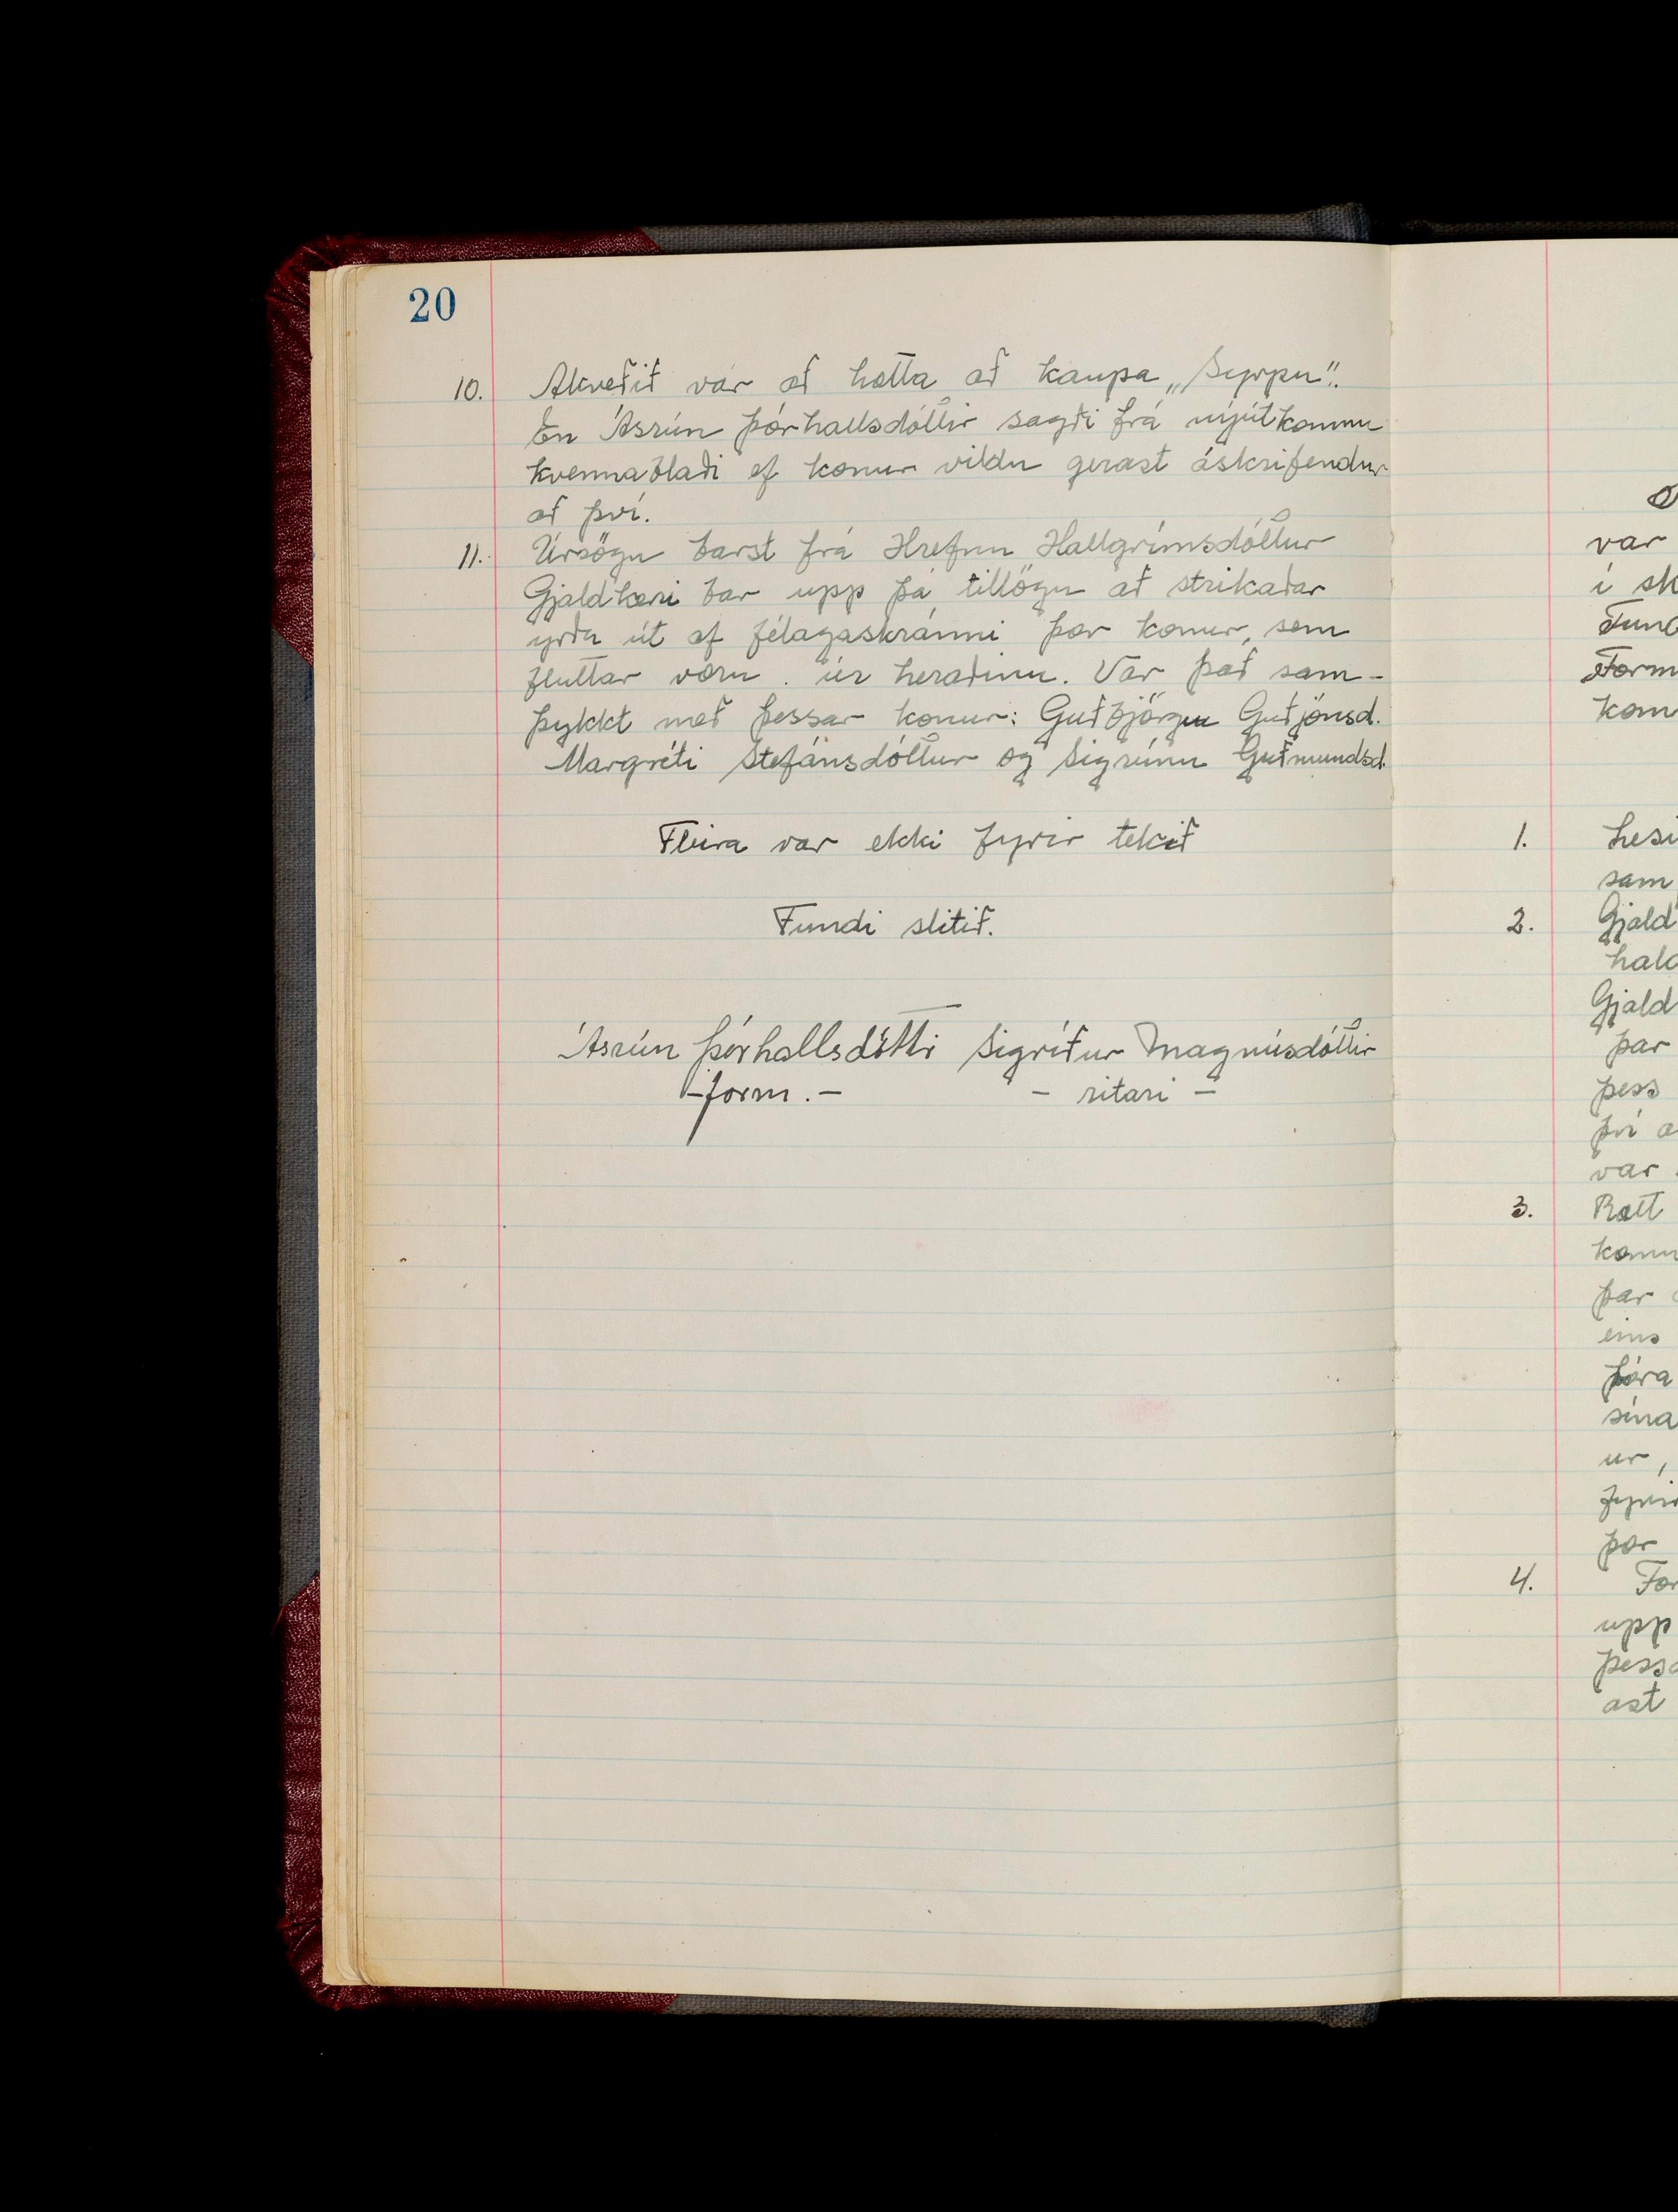 20
10. Akveðið var að hætta að kaupa „Syrpu“.
En Ásrún Þórhallsdóttir sagði frá nýútkomnu
kvennablaði ef konur vildu gerast áskrifendur
að því.
11. Úrsögn barst frá Hrefnu Hallgrímsdóttur
Gjaldkeri bar upp þá tillögu að strikaðar
yrðu út af félagaskránni þær konur, sem
fluttar væru úr héraðinu. Var það sam-
þykkt með þessar konur: Guðbjörgu Guðjónsd.
Margréti Stefánsdóttur og Sigrúnu Guðmundsd.
Fleira var ekki fyrir tekið
Fundi slitið.
Ásrún Þórhallsdóttir Sigríður Magnúsdóttir
-form.- - ritari -
var
í sk
Fund
Form
kom
1. Lesi
sam
2. Gjald
hald
Gjald
þar
þess
því a
var
3. Rætt
komu
þar
eins
fóra
sína
ur,
fyrir
þær
4. For
upp
þessa
ast